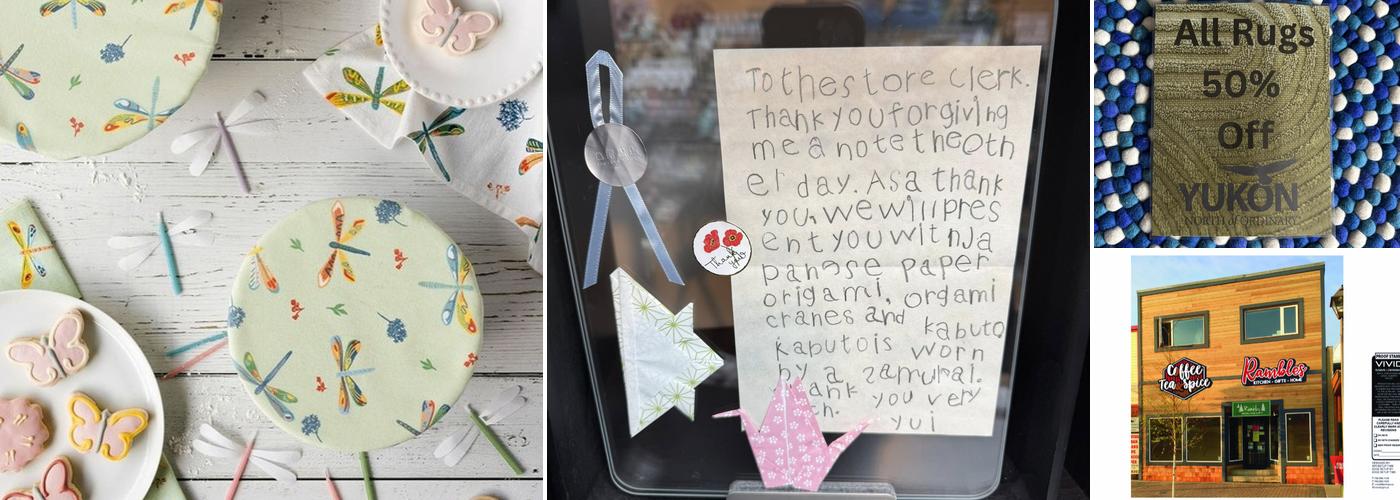 To the store clerk.
Thank you for giving
me a note the oth
er day. As a thank
you, we will pres
ent you with Ja
panese paper
origami, orgami
cranes and kabuto
kabuto is worn
by a zamurai.
ank you very
ch.
yui
Thank
you
All Rugs
50%
Off
YUKON
NORTH of ORDINARY
Coffee
Tea & Spice
Rambles
KITCHEN - GIFTS - HOME
VIVID